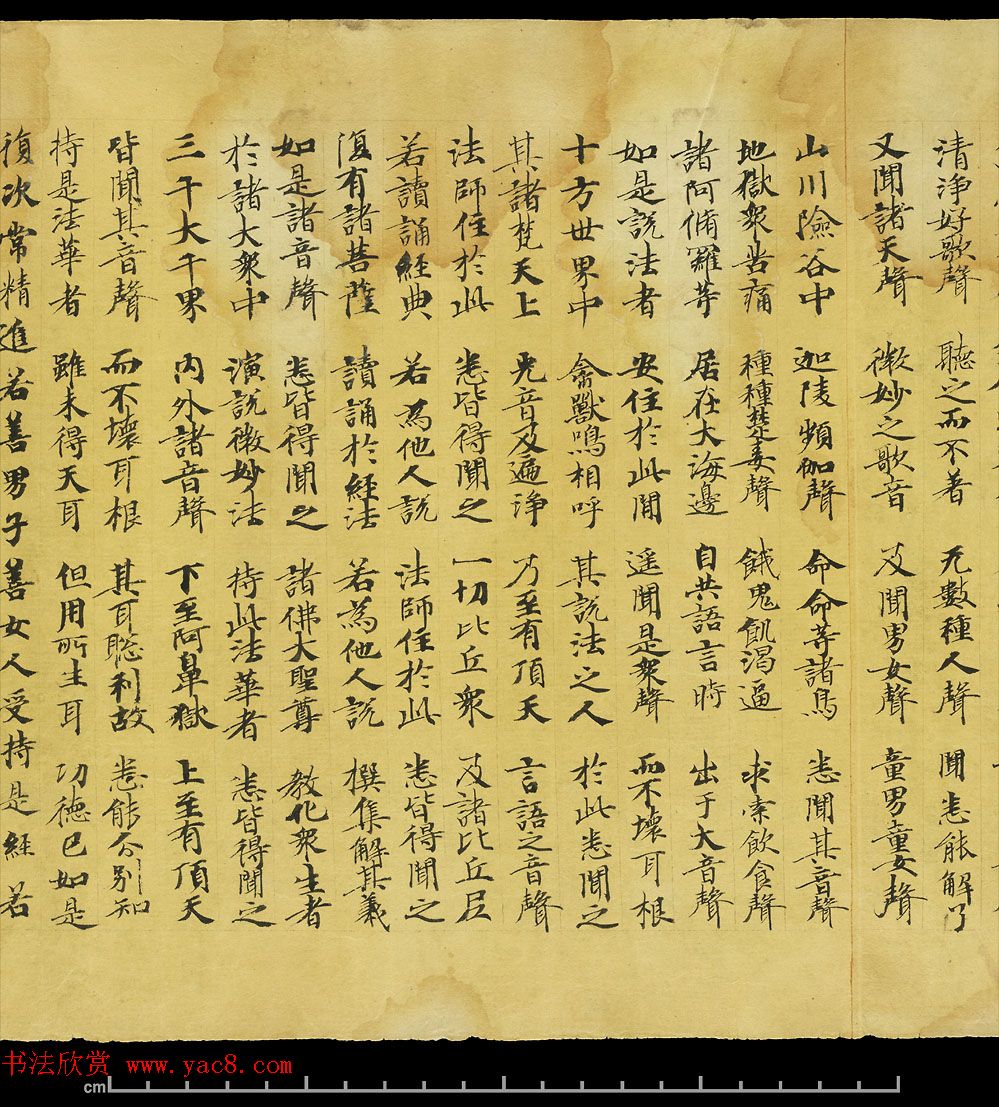 清浄好歌聲 聽之而不著 无數種人聲 聞悉能解了
又聞諸天聲 微妙之歌音 及聞男女聲 童男童女聲
山川險谷中 迦陵頻伽聲 命命等諸鳥 悉聞其音聲
地獄衆苦痛 種種楚毒聲 餓鬼飢渴逼 求索飲食聲
諸阿脩羅等 居在大海邊 自共語言時 出于大音聲
如是說法者 安住於此間 遥聞是衆聲 而不壞耳根
十方世界中 禽獸鳴相呼 其說法之人 於此悉聞之
其諸梵天上 光音及遍浄 乃至有頂天 言語之音聲
法師住於此 悉皆得聞之 一切比丘衆 及諸比丘尼
若讀誦經典 若為他人說 法師住於此 悉皆得聞之
復有諸菩薩 讀誦於經法 若為他人說 撰集解其義
如是諸音聲 悉皆得聞之 諸佛大聖尊 教化衆生者
於諸大衆中 演說微妙法 持此法華者 悉皆得聞之
三千大千界 内外諸音聲 下至阿鼻獄 上至有頂天
皆聞其音聲 而不壞耳根 其耳聡利故 悉能分別知
持是法華者 雖未得天耳 但用所生耳 功德已如是
復次常精進若善男子善女人受持是經若
书法欣赏 www.yac8.com
cm